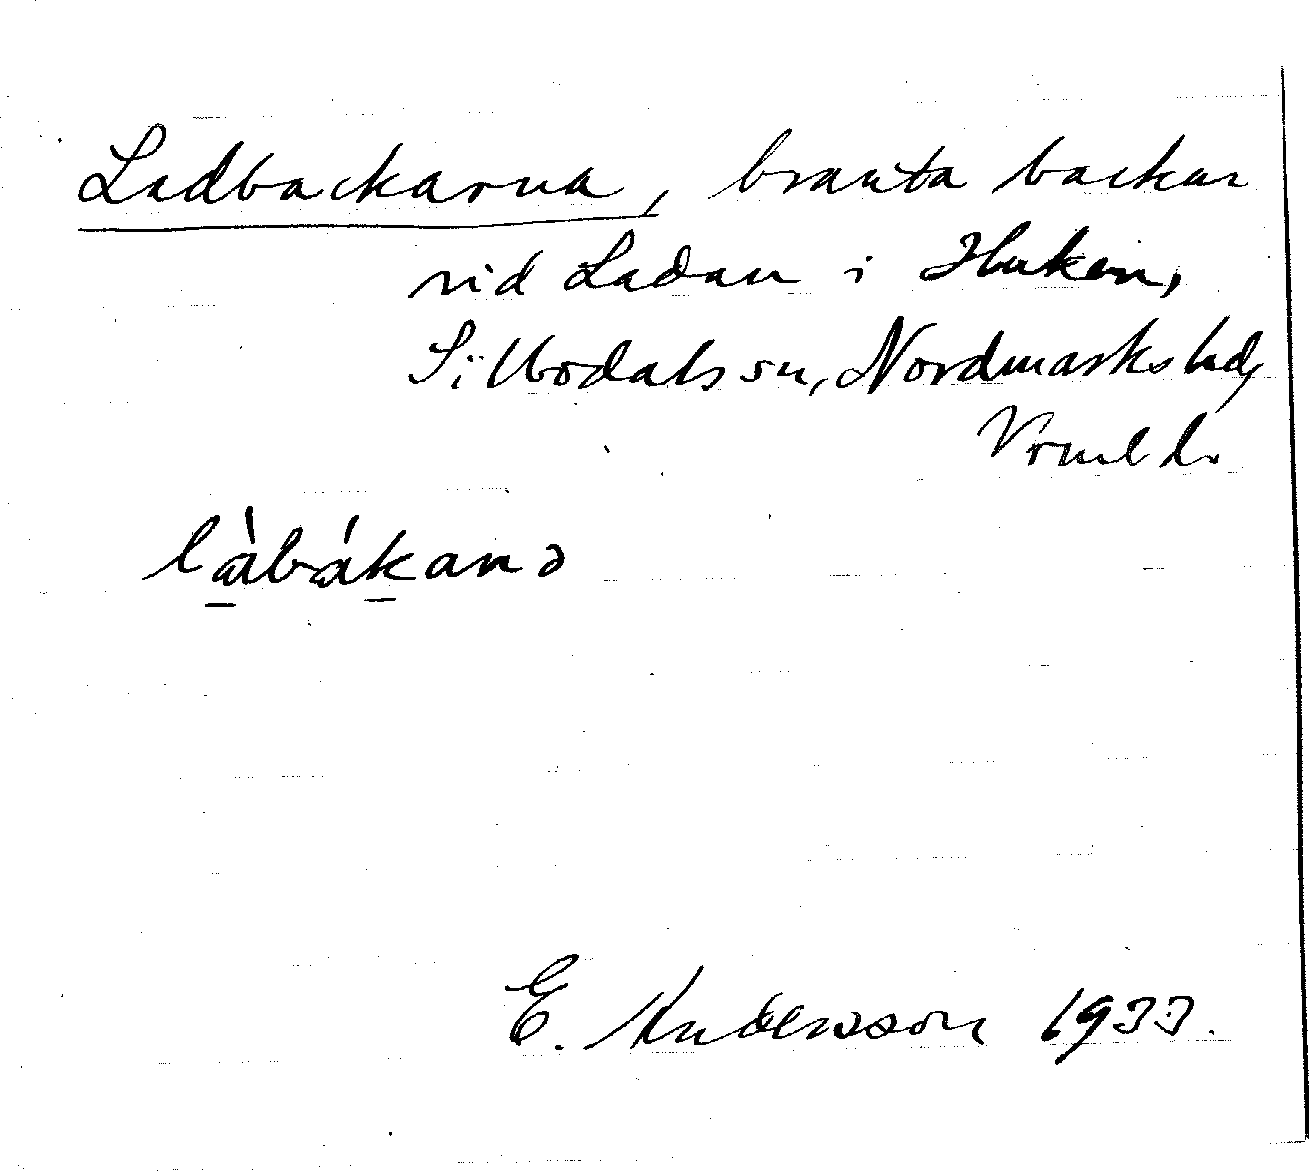 Ladbackarna, branta backar
vid Ladan i Huken,
Sillbodals sn, Nordmarks hd,
Vrml d.
làbákanə
E. Andersson 1933.